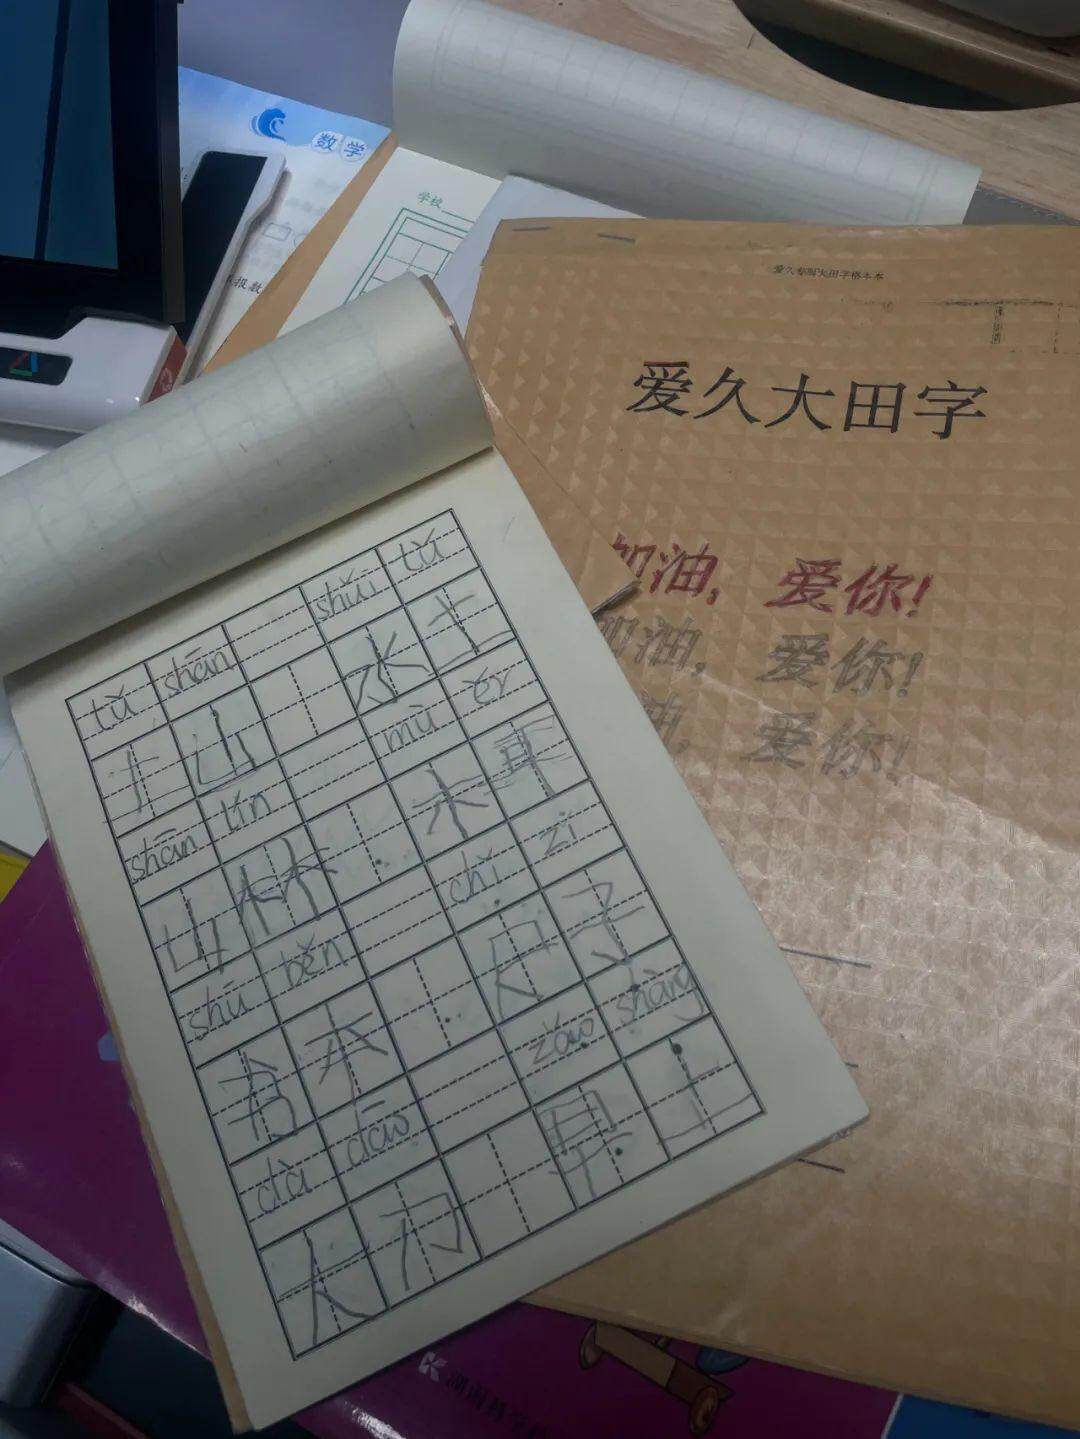 数学
学校
爱久大田字
加油，爱你！
加油，爱你！
油，爱你！
tǔ shān shuǐ tǔ
土 山 水 土
shān lín mù ěr
山 林 木 耳
shū běn chǐ zi
本 尺 子
dà dāo zǎo shàng
大 刀 早 上